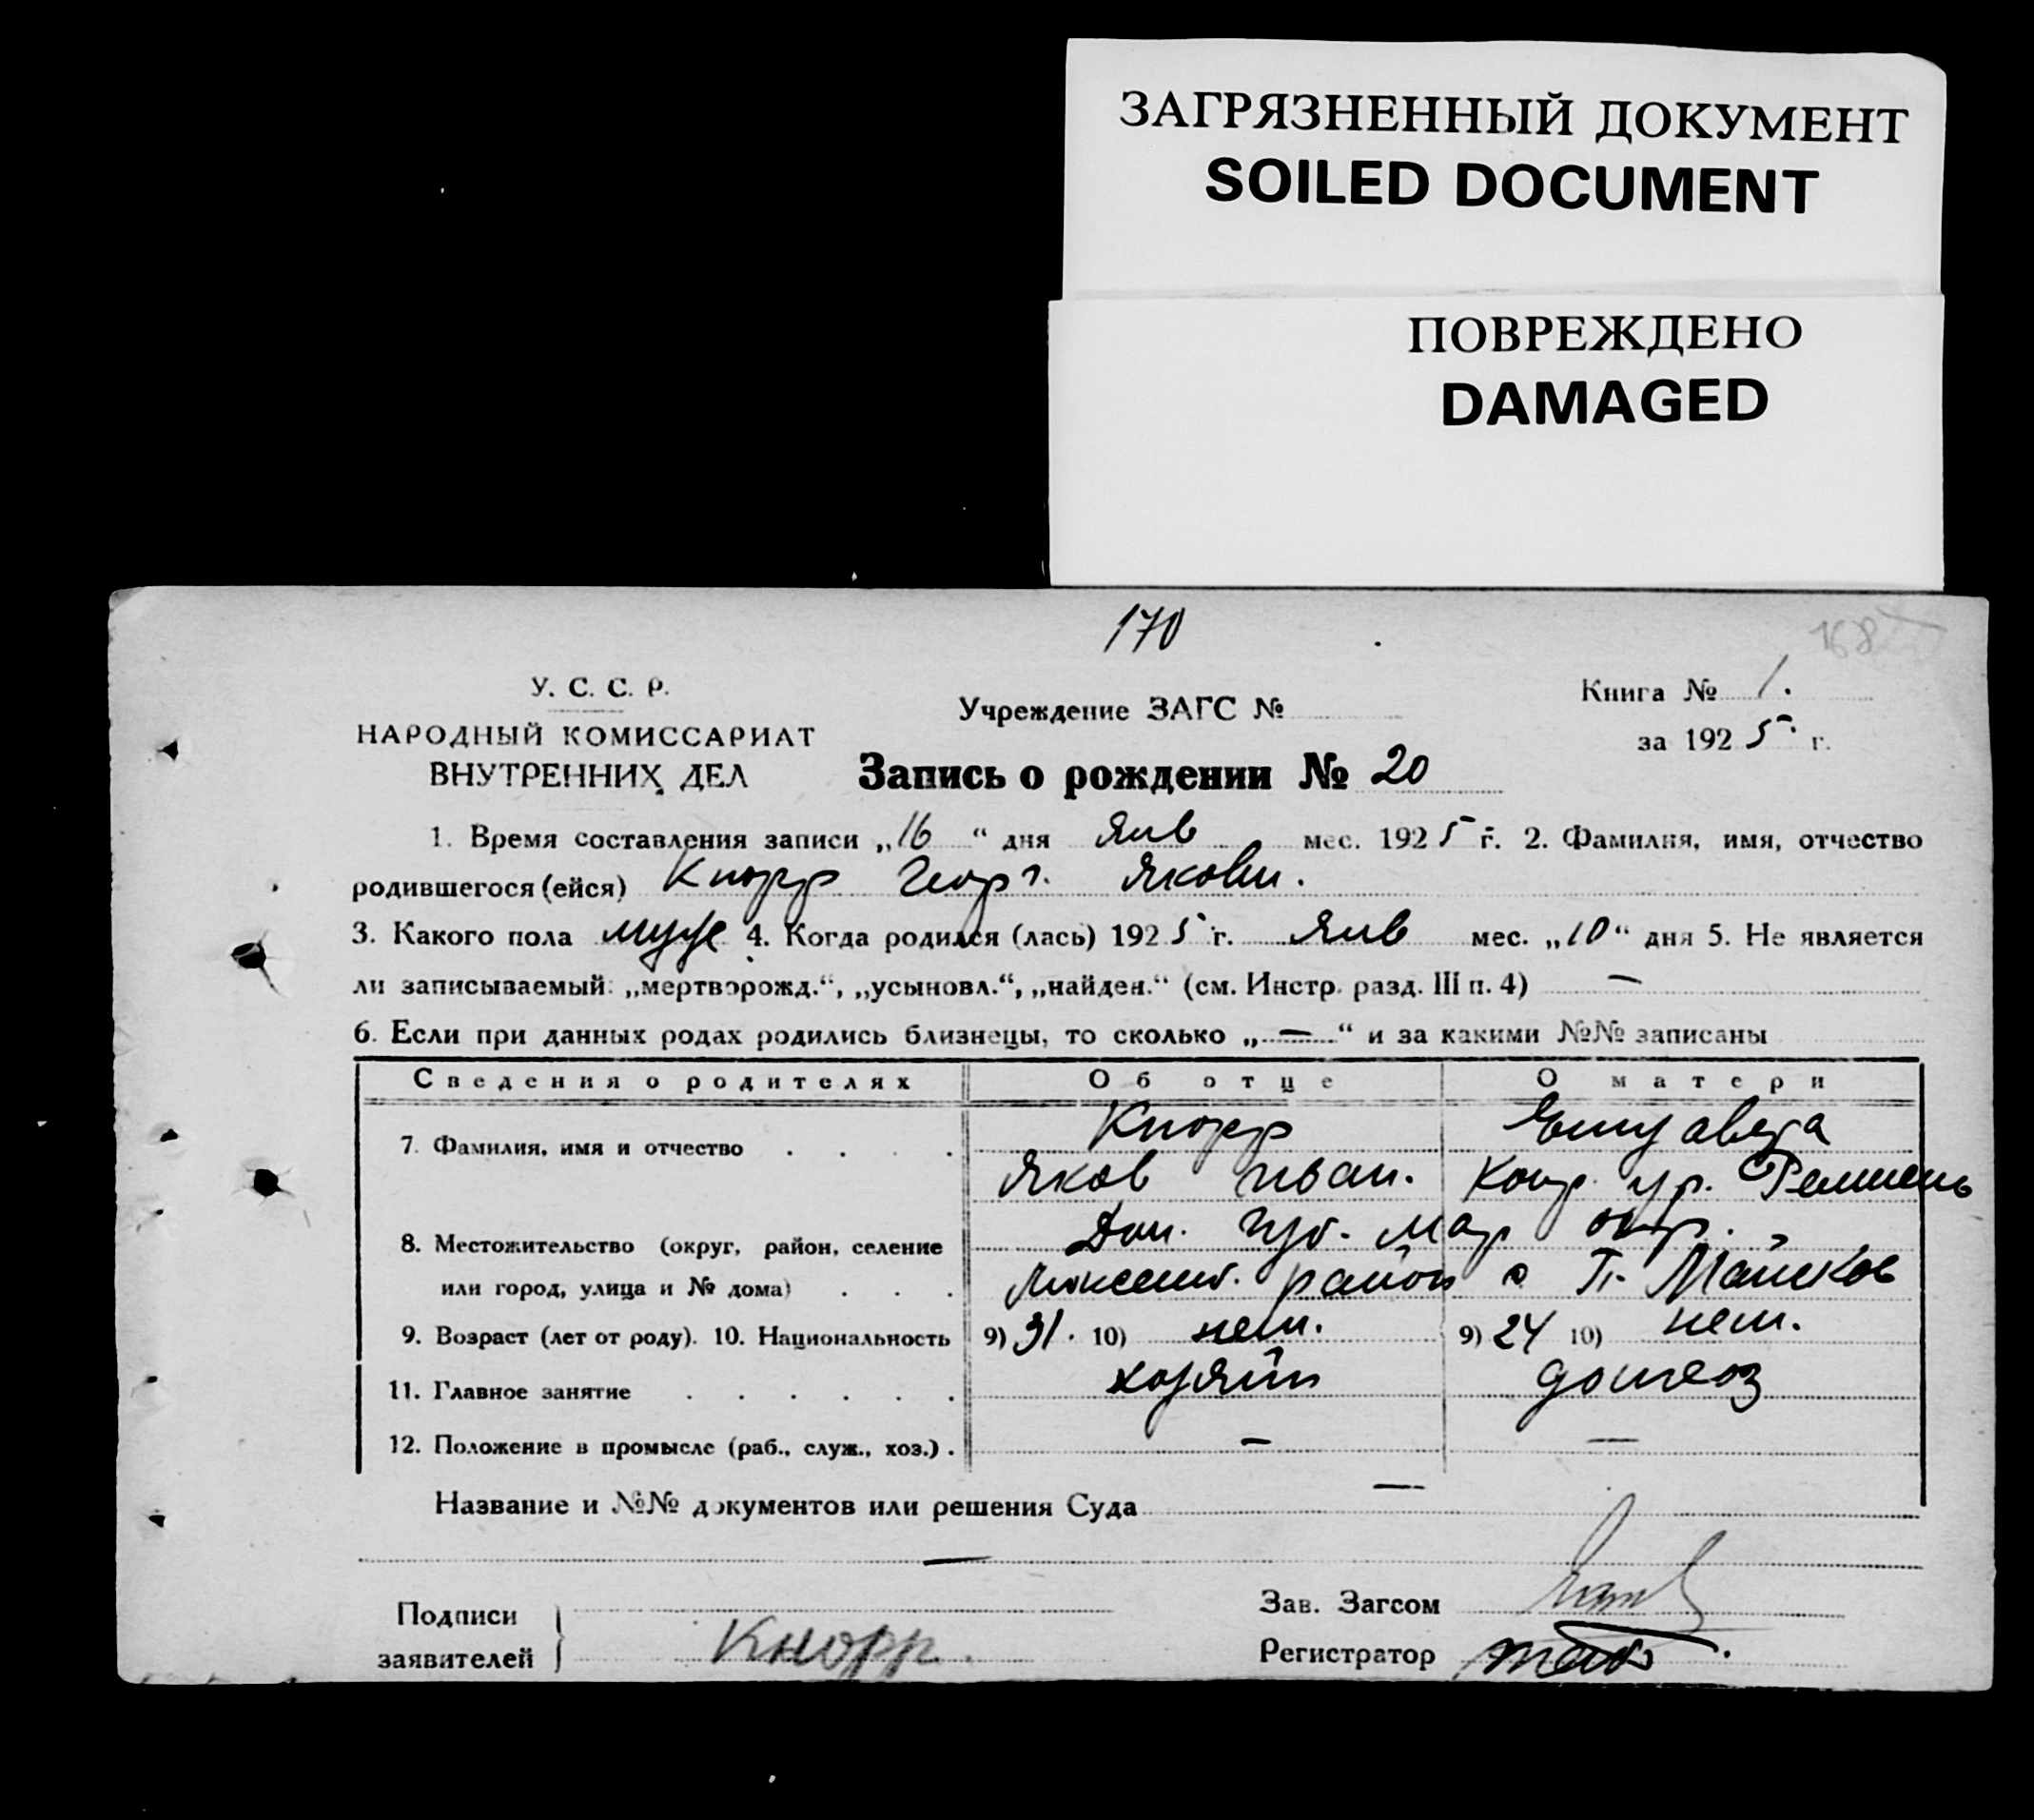 ЗАГРЯЗНЕННЫЙ ДОКУМЕНТ
SOILED DOCUMENT
ПОВРЕЖДЕНО
DAMAGED
170
168
У. С. С. Р.
НАРОДНЫЙ КОМИССАРИАТ
ВНУТРЕННИХ ДЕЛ
Учреждение ЗАГС №
Книга № 1.
за 1925 г.
Запись о рождении № 20
1. Время составления записи „16“ дня Янв мес. 1925 г. 2. Фамилия, имя, отчество
родившегося (ейся) Кнорр Георг. Яковл.
3. Какого пола муж 4. Когда родился (лась) 1925 г. Янв мес. „10“ дня 5. Не является
ли записываемый: „мертворожд.“, „усыновл.“, „найден.“ (см. Инстр. разд. III п. 4) —
6. Если при данных родах родились близнецы, то сколько „—“ и за какими №№ записаны
Сведения о родителях Об отце О матери
7. Фамилия, имя и отчество Кнорр Елизавета
Яков Иван. Конр. ур.
8. Местожительство (округ, район, селение Дон. губ. Мар окр.
или город, улица и № дома) район
9. Возраст (лет от роду). 10. Национальность 9) 31. 10) нем. 9) 24 10) нем.
11. Главное занятие хозяин домхоз
12. Положение в промысле (раб., служ., хоз.) . — —
Название и №№ документов или решения Суда —
—
Подписи
заявителей Кнорр.
Зав. Загсом
Регистратор